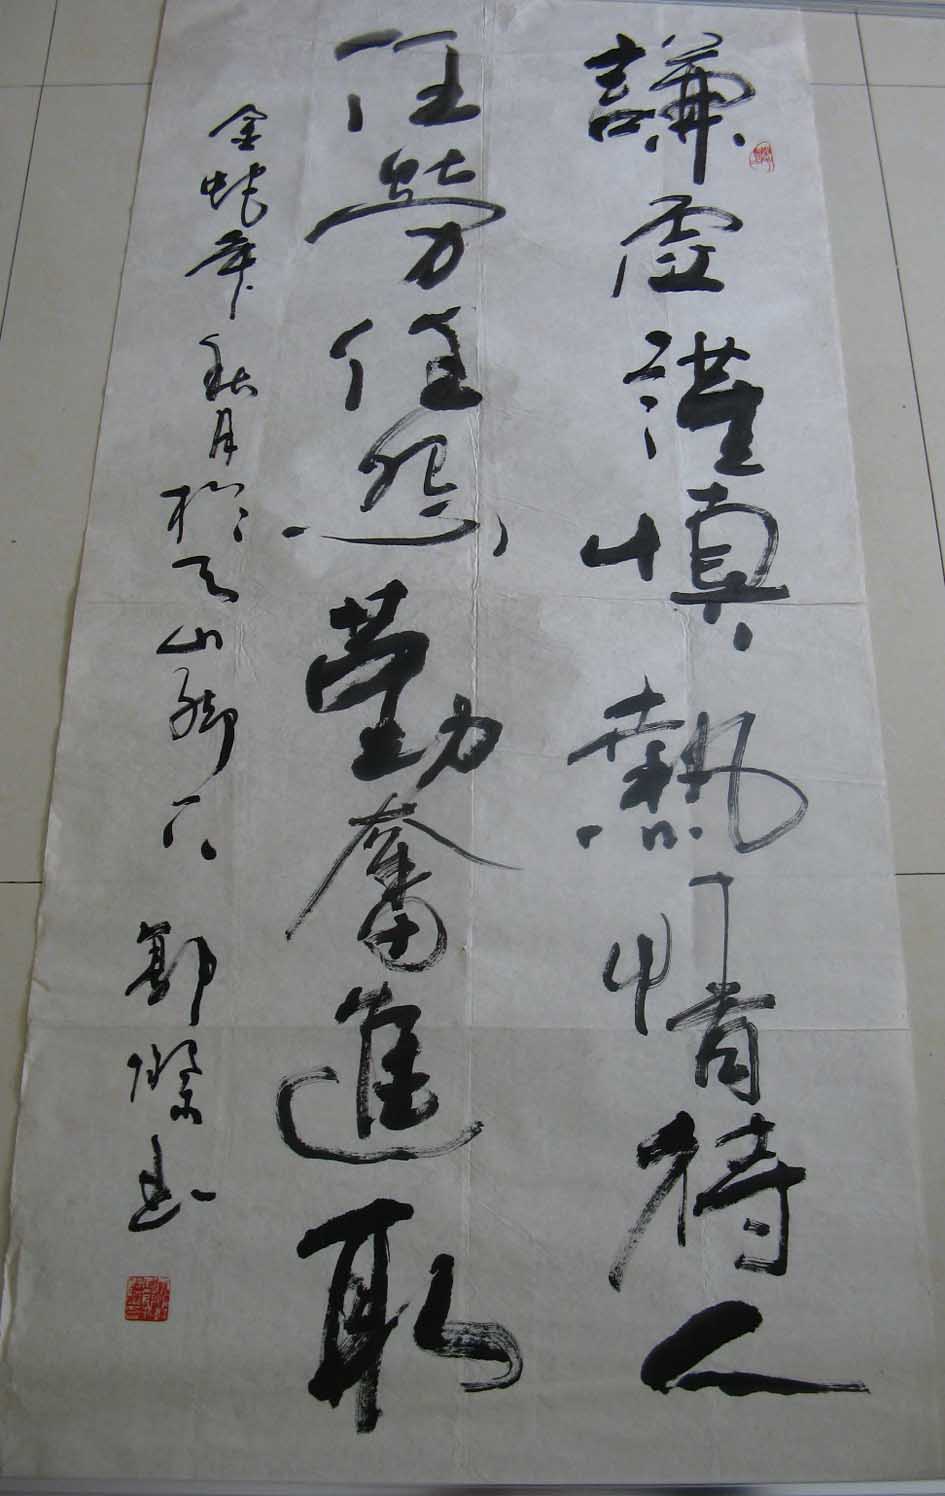 謙虚謹慎熱情待人
任勞任怨勤奮進取
金蛇年秋月於天山脚下 鄭傑書